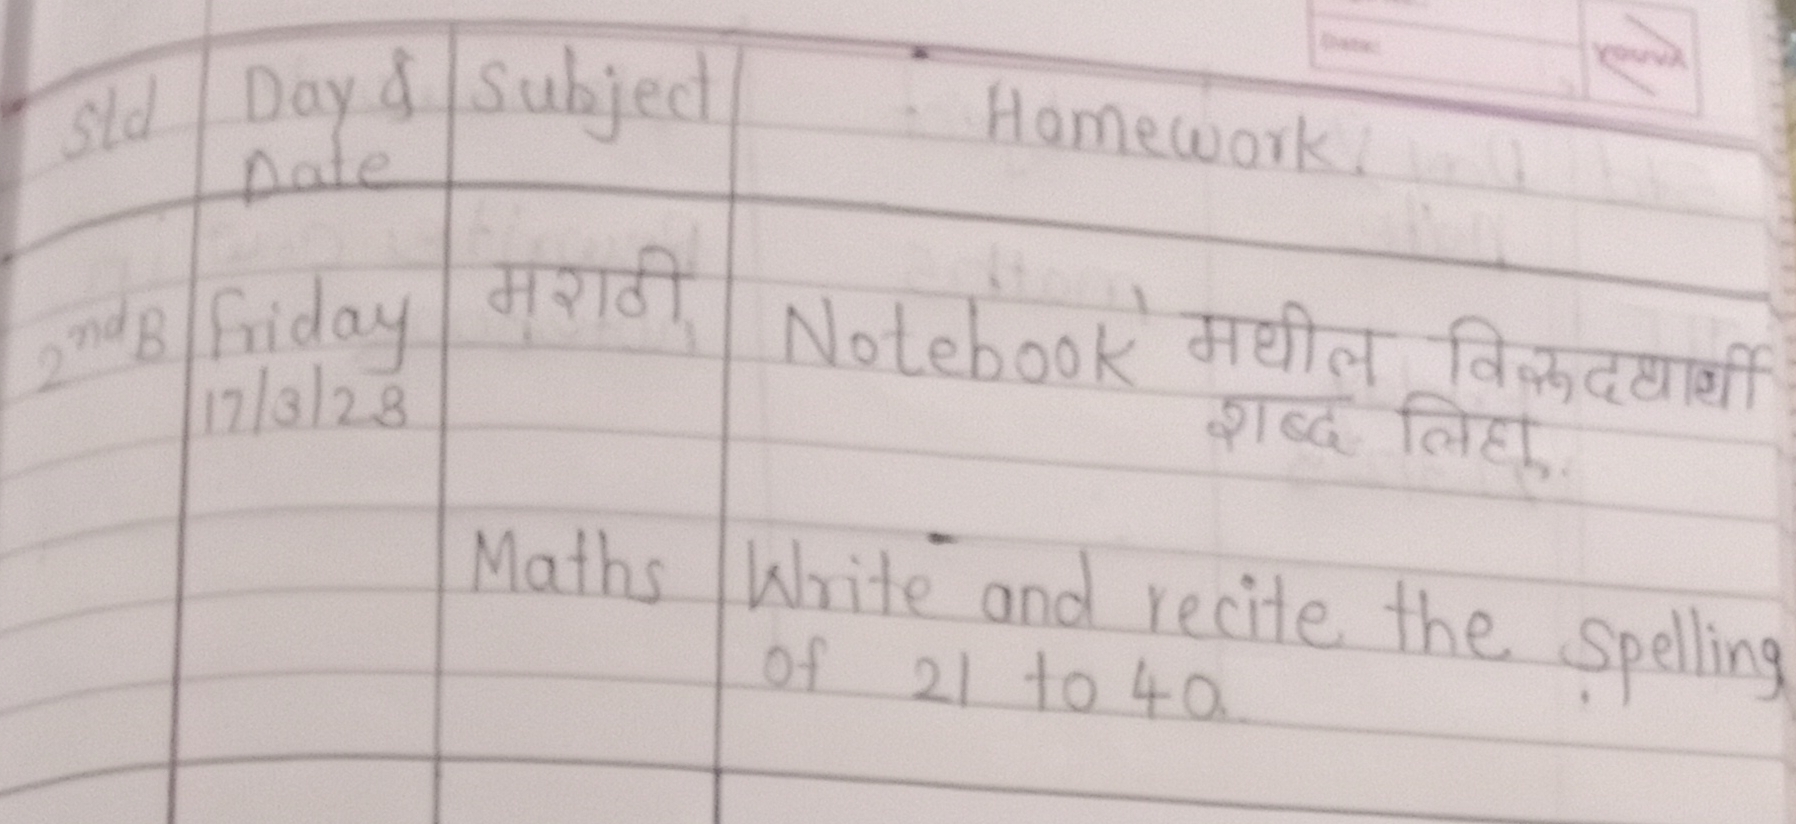 Date:
YOUVA
Std Day & Subject Homework.
Date
2nd B Friday मराठी Notebook मधील विरूदधार्थी
17/3/23 शब्द लिहा.
Maths Write and recite the spelling
of 21 to 40.